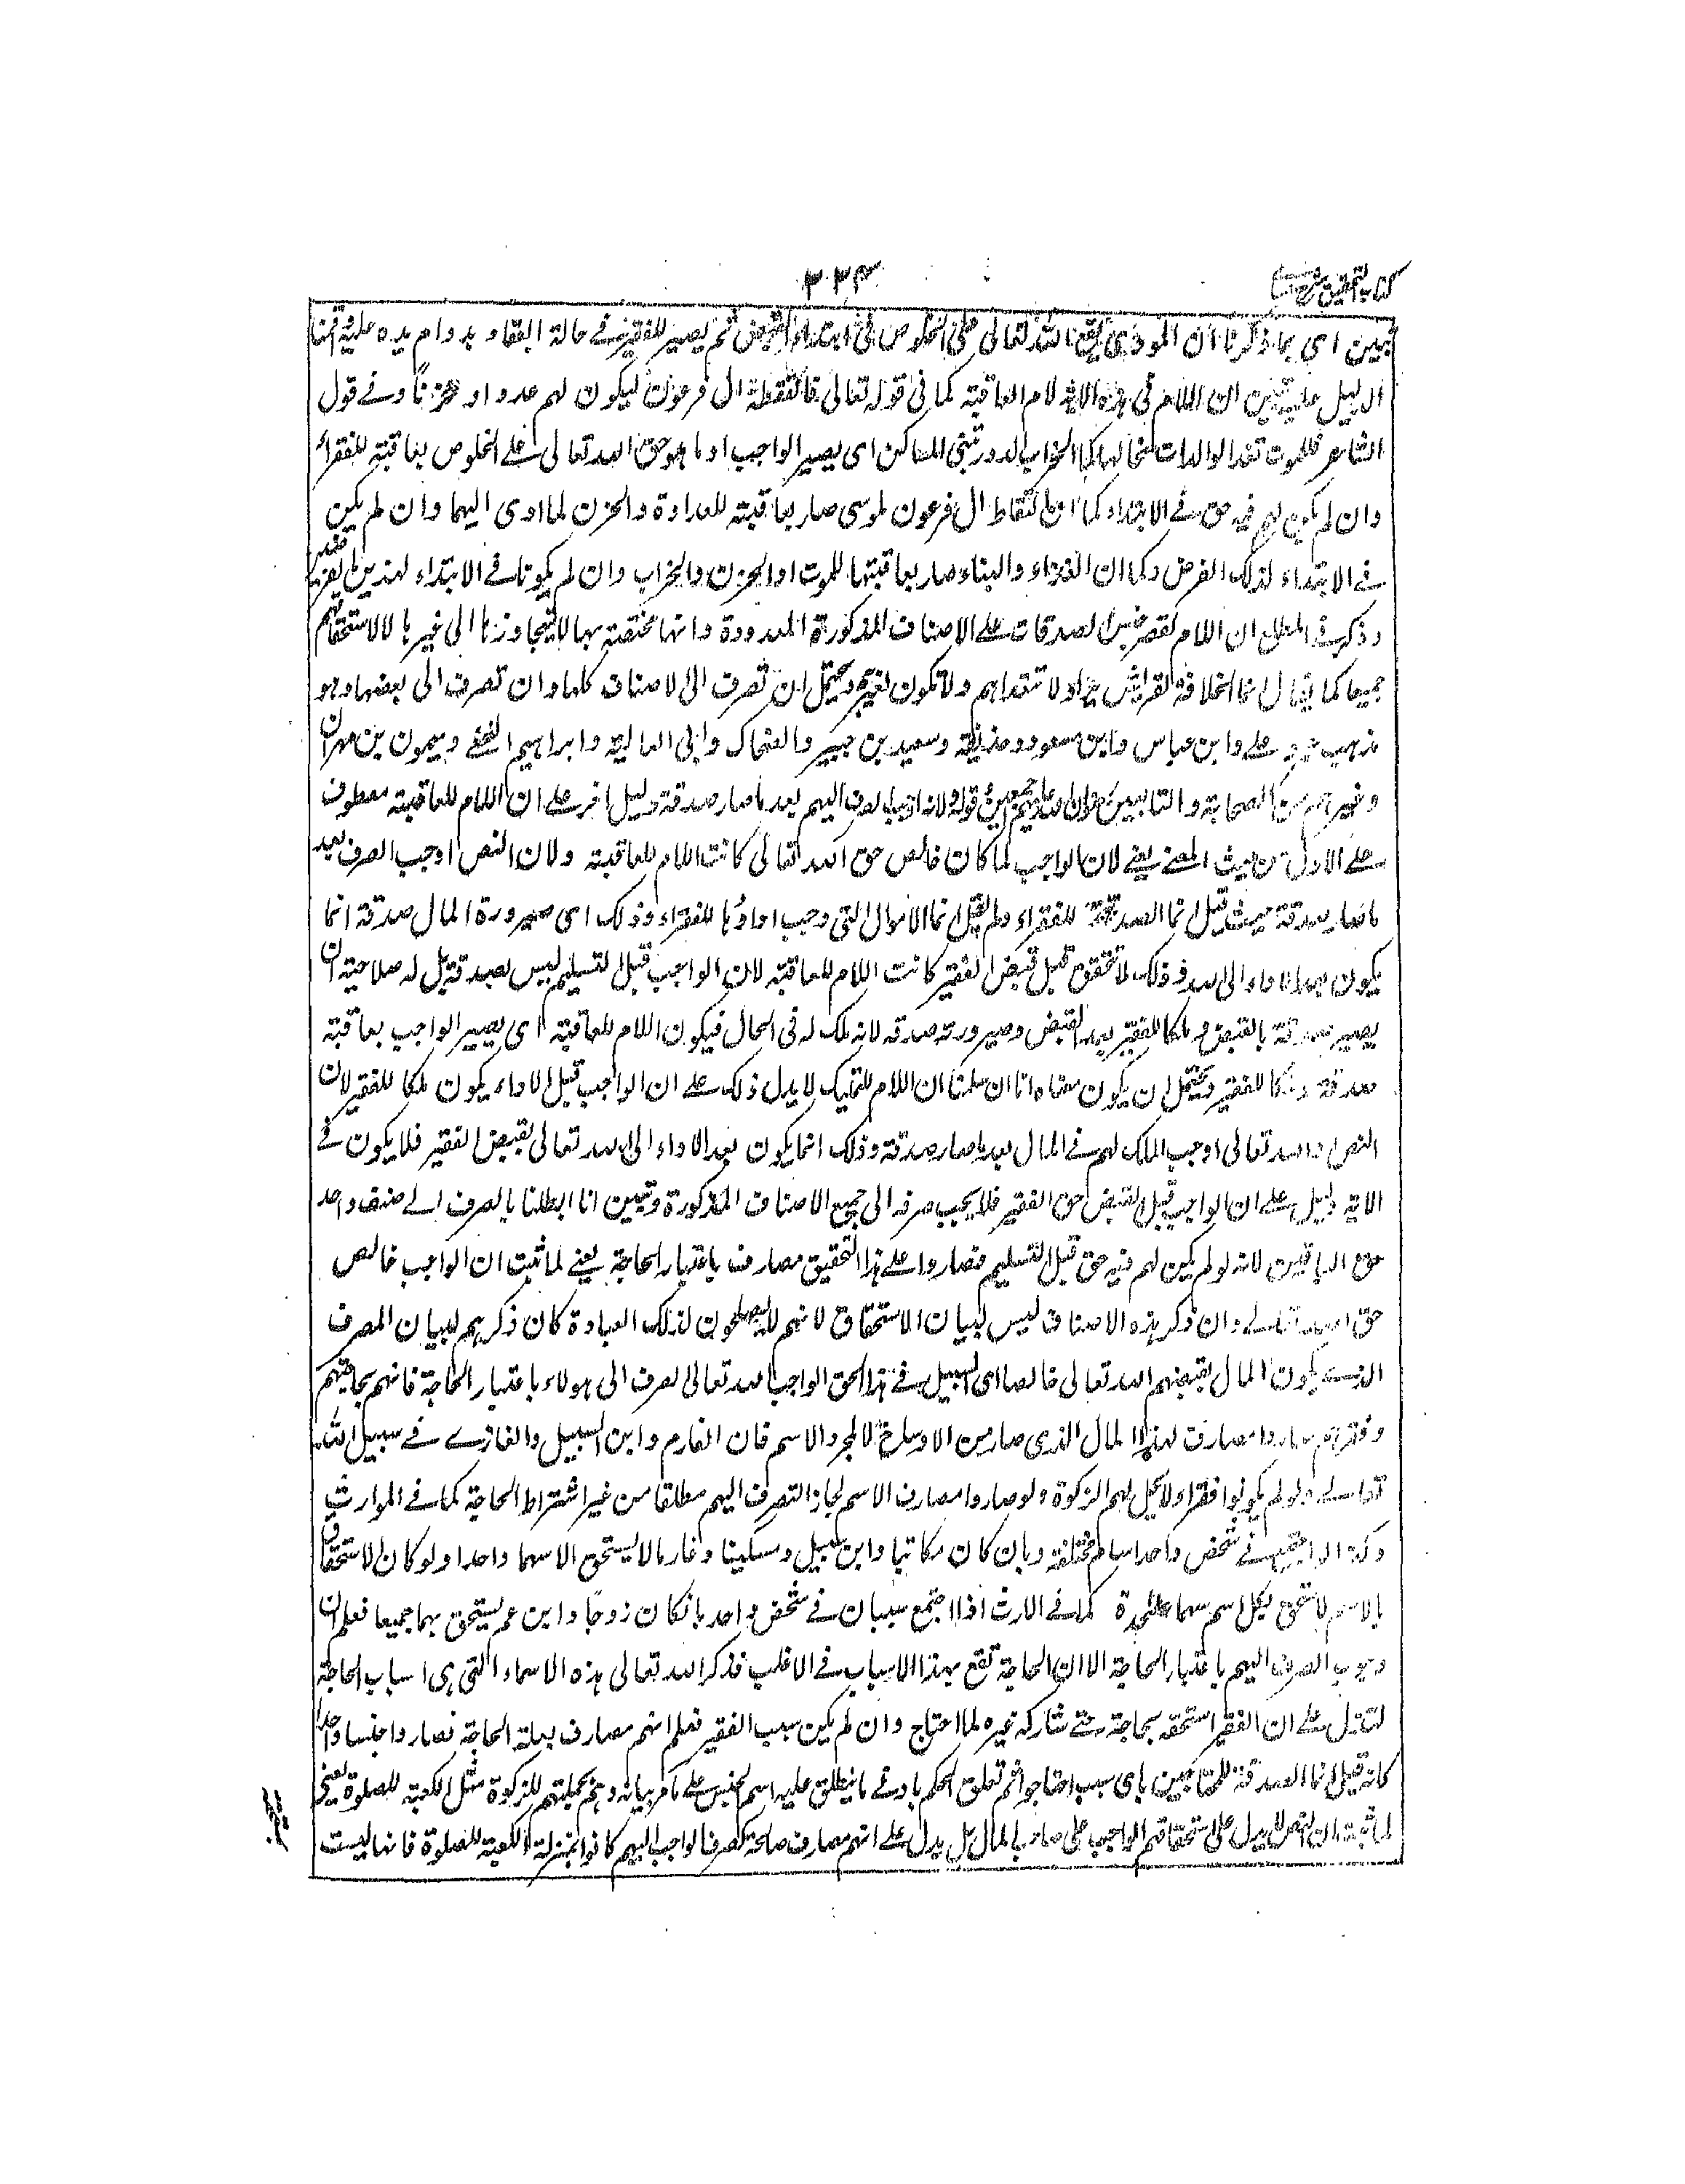 كتاب التحقيق شرح
٣٣٤
تبين اى بما ذكرنا ان المودى يقع لله تعالى على الخلوص فى ابتداء القبض ثم يصير للفقير فے حالة البقاء بدوام يده عليه
الدليل عليه تبين ان اللام فى هذه الاية لام العاقبة كما فى قوله تعالى فالتقطه ال فرعون ليكون لهم عدوا و حزنا وفے قول
الشاعر فللموت تغذ الوالدات سخالها كما لخراب الدور تبنى المساكن اى يصير الواجب اداء هو حق الله تعالى على الخلوص بعاقبته للفقراء
وان لم يكن لهم فيه حق فے الابتداء كما ان التقاط ال فرعون لموسى صار بعاقبته للعداوة والحزن لما ادى اليهما وان لم يكن
فے الابتداء لذلك الغرض وكما ان الغذاء والبناء صار بعاقبتها للموت او الحزن والخراب وان لم يكونا فے الابتداء لهذين
وذكر فے المطلع ان اللام لقصر جنس الصدقات على الاصناف المذكورة المعدودة وانها مختصة بها لا يتجاوزها الى غيرها لا لاستحقاقهم
جميعا كما يقال انما الخلافة لقريش يراد لا تتعداهم ولا تكون لغيرهم ويحتمل ان تصرف الى الاصناف كلها وان تصرف الى بعضها وهو
مذهب على وابن عباس وابن مسعود وحذيفة وسعيد بن جبير والضحاك وابى العالية وابراهيم النخعى وميمون بن مهران
وغيرهم من الصحابة والتابعين رضوان الله عليهم اجمعين قوله ولانه اوجب الصرف اليهم بعد ما صار صدقة دليل اخر على ان اللام للعاقبة معطوف
على الاول من حيث المعنى يعنى لان الواجب لما كان خالص حق الله تعالى كانت اللام للعاقبة ولان النص اوجب الصرف بعد
ما صار صدقة حيث قيل انما الصدقة للفقراء ولم يقل انما الاموال التى وجب اداؤها للفقراء وذلك اى صيرورة المال صدقة انما
يكون بعد الاداء الى الله وذلك لا تحقق قبل قبض الفقير كانت اللام للعاقبة لان الواجب قبل التسليم ليس بصدقة بل له صلاحية ان
يصير صدقة بالقبض وملكا للفقير بعد القبض وصيرورته صدقه لانه ملك له فى الحال فيكون اللام للعاقبة اى يصير الواجب بعاقبته
صدقة وملكا للفقير ويحتمل ان يكون معناه انا ان سلمنا ان اللام للتمليك لا يدل ذلك على ان الواجب قبل الاداء يكون ملكا للفقير لان
النص والله تعالى اوجب الملك لهم فے المال بعد ما صار صدقة وذلك انما يكون بعد الاداء الى الله تعالى بقبض الفقير فلا يكون فے
الاية دليل على ان الواجب قبل القبض حق الفقير فلا يجب صرفه الى جميع الاصناف المذكورة وتبين انا ابطلنا بالصرف الى صنف واحد
حق الباقين لانه لو لم يكن لهم فيه حق قبل التسليم فصاروا على هذا التحقيق مصارف باعتبار الحاجة يعنى لما ثبت ان الواجب خالص
حق الله تعالى وان ذكر هذه الاصناف ليس لبيان الاستحقاق لانهم لا يصلحون لذلك العبادة كان ذكرهم لبيان المصرف
الذى يكون المال بقبضهم لله تعالى خالصا اى السبيل فے هذا الحق الواجب لله تعالى الصرف الى هولاء باعتبار الحاجة فانهم بحاجتهم
وفقرهم صاروا مصارف لهذا المال الذى صار من الاوساخ لا لمجرد الاسم فان الغارم وابن السبيل والغازى فے سبيل الله
تعالى لو لم يكونوا فقراء لا يحل لهم الزكوة ولو صاروا مصارف الاسم لجاز التصرف اليهم مطلقا من غير اشتراط الحاجة كما فے المواريث
وكذا اذا اجتمع فے شخص واحد اسام مختلفة وبان كان مكاتبا وابن سبيل ومسكينا وغارما لا يستحق الا سهما واحدا ولو كان الاستحقاق
بالاسم لاستحق بكل اسم سهما علحدة كما فے الارث اذا اجتمع سببان فے شخص واحد بانكان زوجا وابن عم يستحق بهما جميعا فعلم ان
وجوب الصرف اليهم باعتبار الحاجة الا ان الحاجة تقع بهذا الاسباب فے الاغلب فذكر الله تعالى هذه الاسماء التى هى اسباب الحاجة
لتدل على ان الفقير استحقه بحاجة حتے شاركه غيره لما احتاج وان لم يكن سبب الفقير فعلم انهم مصارف بعلة الحاجة فصاروا جنسا واحدا
كانه قيل انما الصدقة للمحتاجين باى سبب احتاجوا ثم تعلق الحكم بادنے ما ينطلق عليه اسم الجنس على ما مر بيانه وهم بجملتهم للزكوة مثل الكعبة للصلوة يعنى
لما ثبت ان النص لا يدل على استحقاقهم الواجب على صاحب المال بل يدل على انهم مصارف صالحة لصرف الواجب اليهم كانوا بمنزلة الكعبة للصلوة فانها ليست